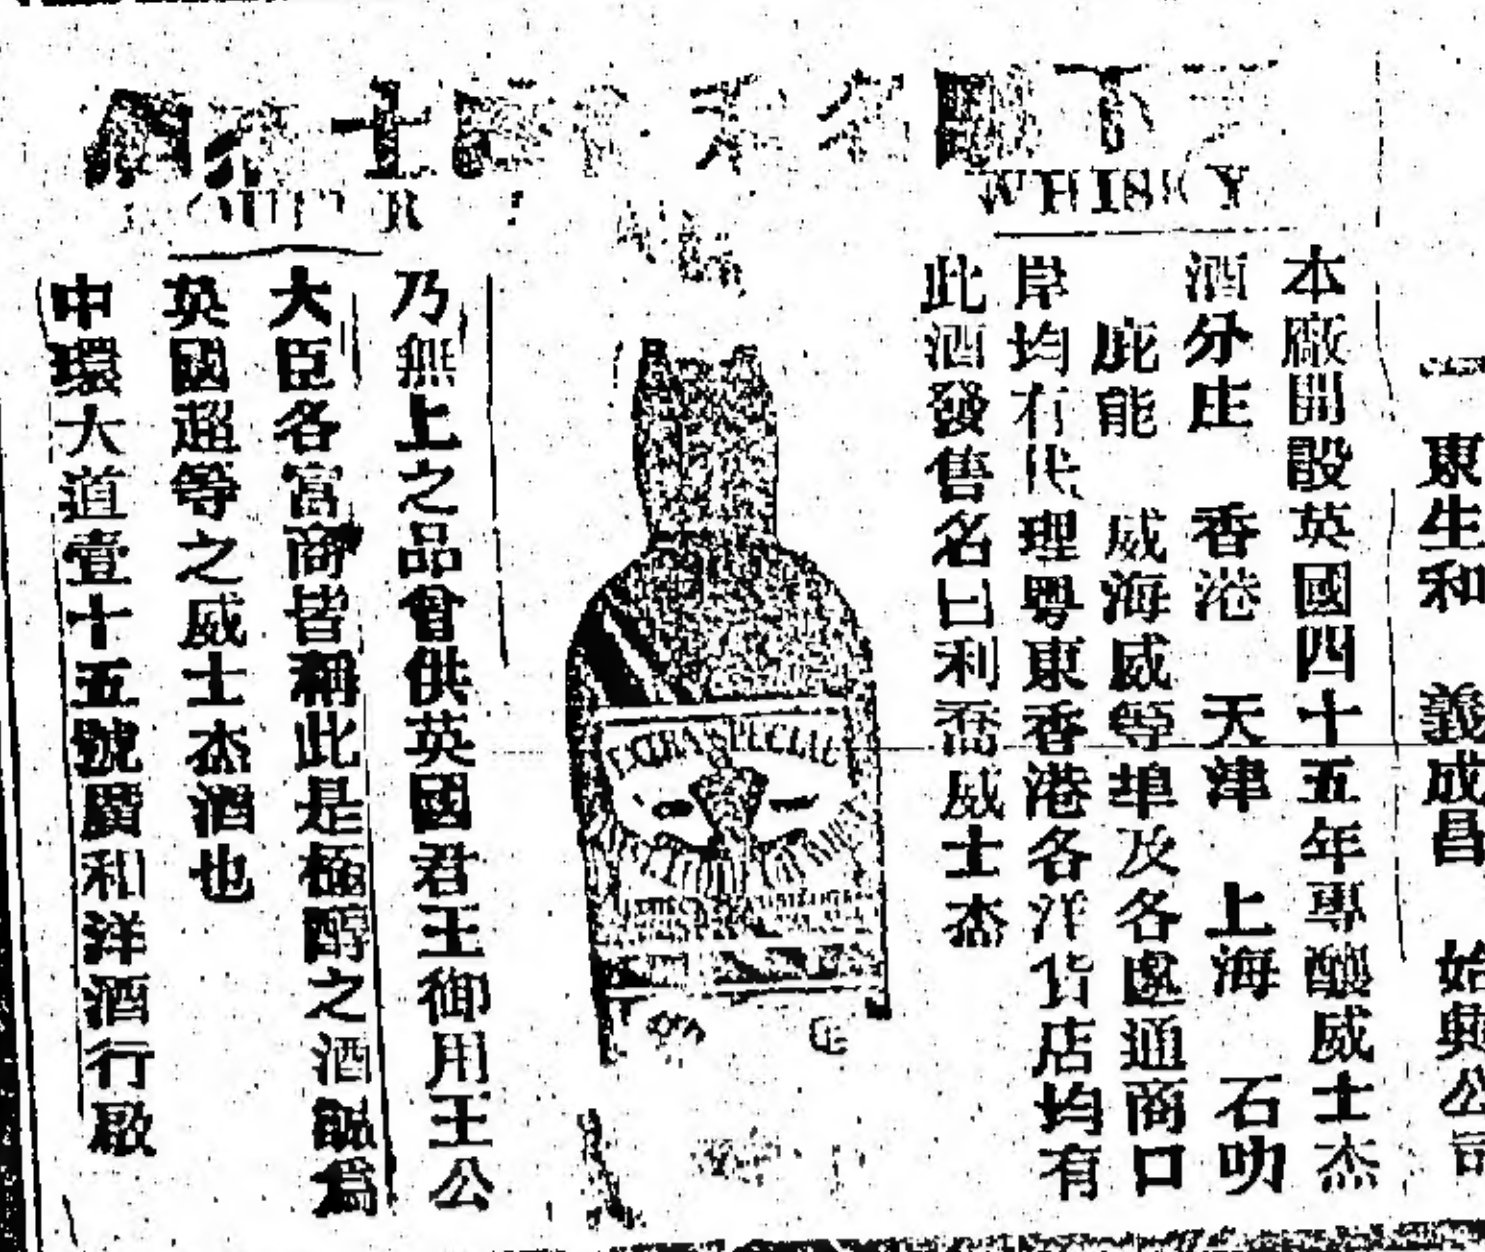 WHISKY
本廠開設英國四十五年專釀威士杰
酒分庄 香港 天津 上海 石叻
庇能 威海威等埠及各處通商口
岸均有代理粵東香港各洋貨店均有
此酒發售名曰利喬威士杰
EXTRA SPECIAL
乃無上之品曾供英國君王御用王公
大臣各富商皆稱此是極醇之酒誠為
英國超等之威士杰酒也
中環大道壹十五號廣和洋酒行啟
東生和 義成昌 始興公司